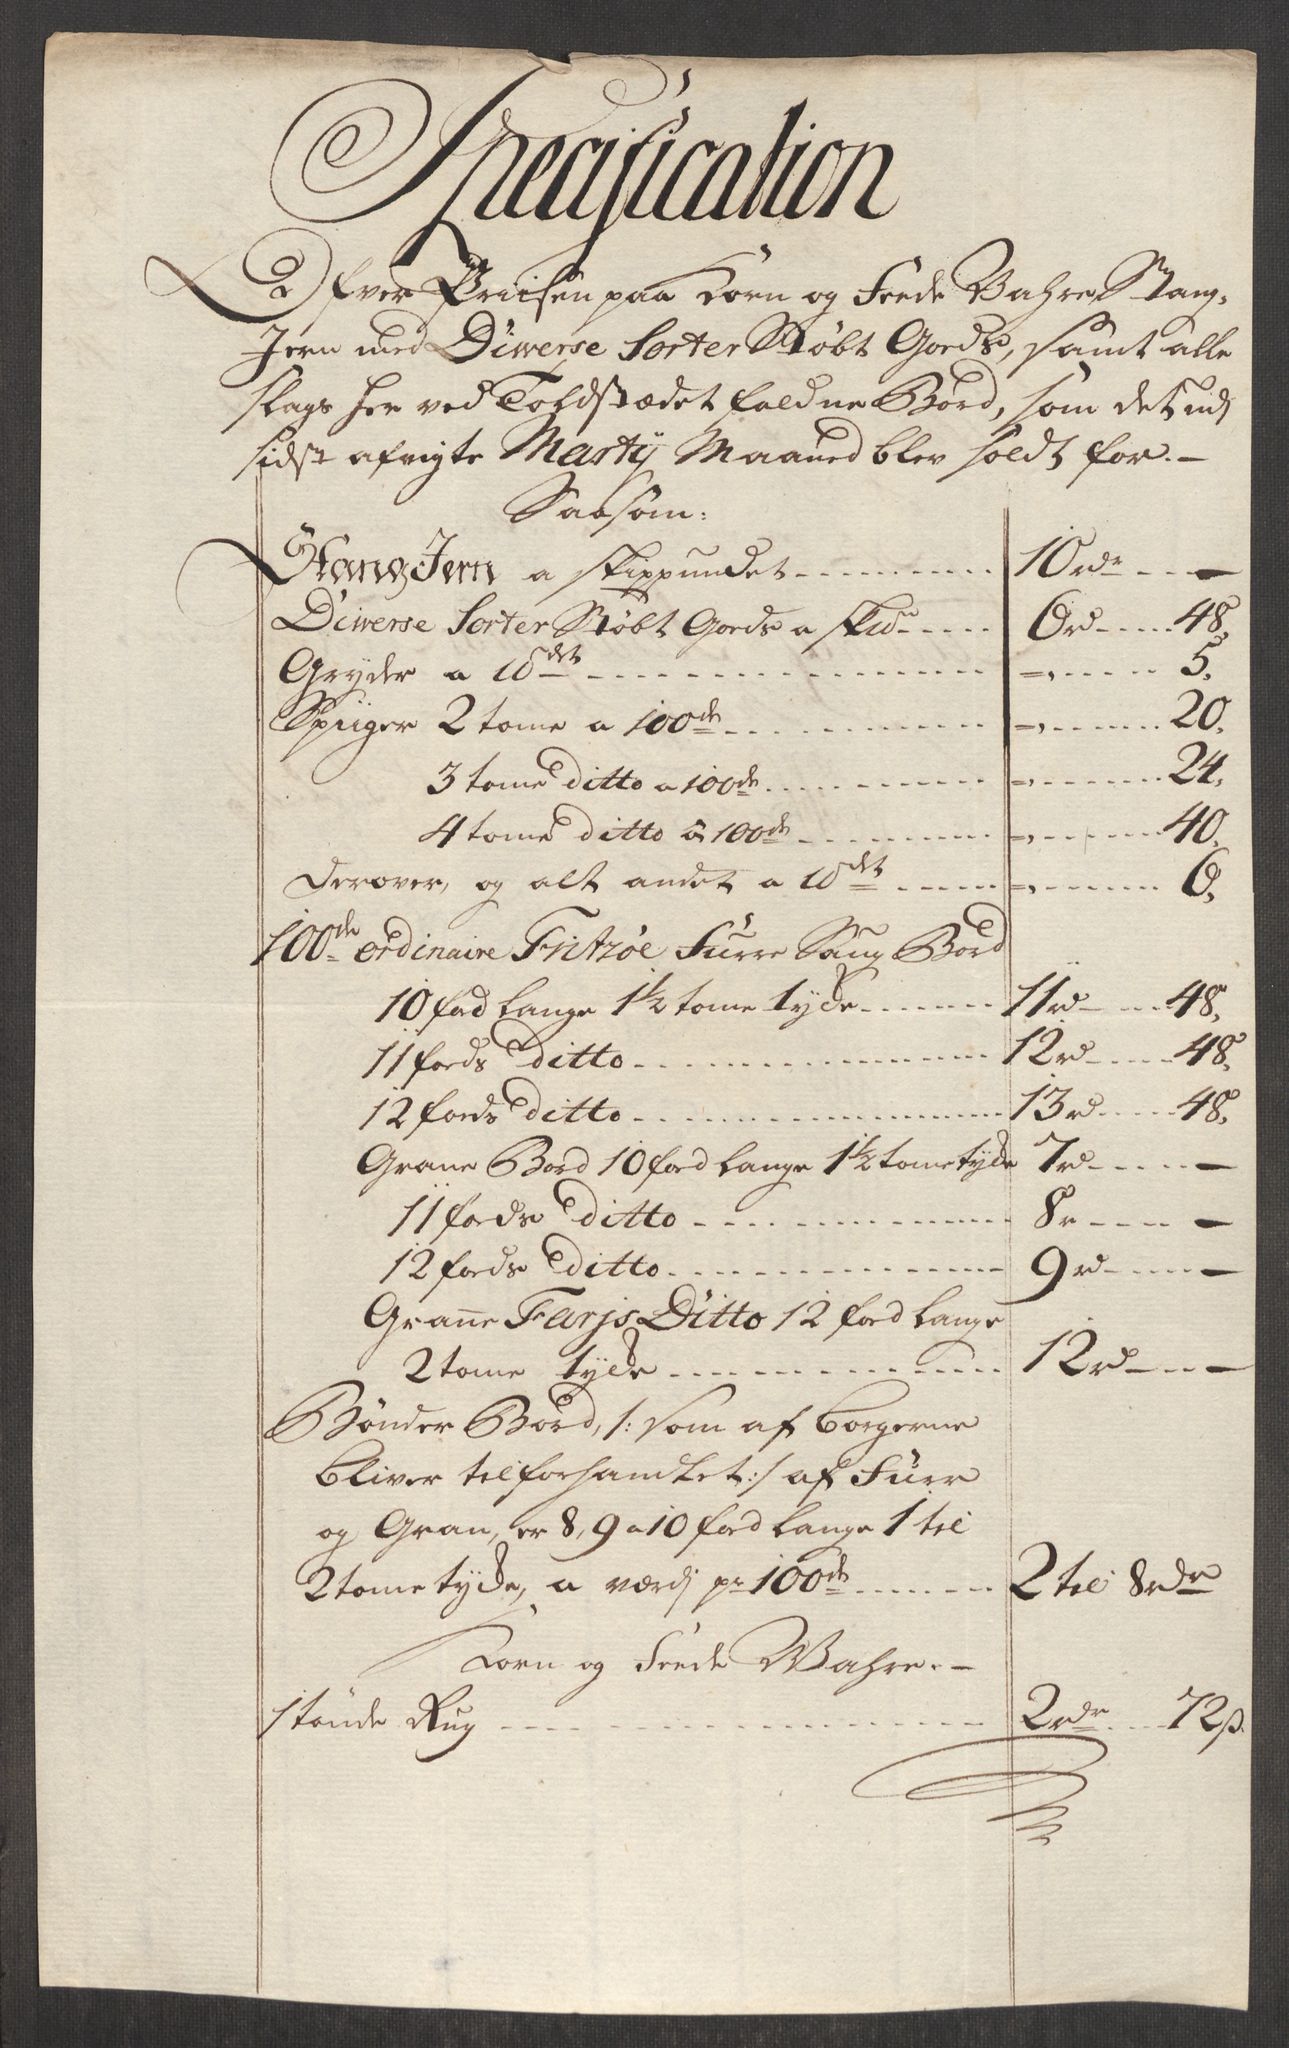 Specification
Ofver Priisen paa Korn og Feede Vahre, Stang-
Jern med Diverse Sorter Støbt Goeds, samt alle
slags her ved Toldstædet faldne Bord, som det udj
sidst afvigte Martij Maaned blev soldt for.–
Saasom:
Stang Jern a skippundet 10 rdr –
Diverse Sorter Støbt Goeds a sk℔ 6 rd 48.
Gryder a ℔det =,, 5.
Spiiger 2 tome a 100de =,, 20.
3 tome ditto a 100de =,, 24.
4 tome ditto a 100de =,, 40.
Derover, og alt andet a ℔det =,, 6.
100de ordinaire Fritzøe Furre Saug Bord
10 foed lange 1½ tome tyke 11 rd 48.
11 foeds ditto 12 rd 48.
12 foeds ditto 13 rd 48.
Grane Bord 10 foed lange 1½ tome tyke 7 rd –
11 foeds ditto 8 r –
12 foeds ditto 9 rd –
Grane Farjs Ditto 12 foed lange
2 tome tyke 12 rd –
Bønder Bord, /: som af Borgerne
bliver tilforhandlet :/ af Furr
og Gran, er 8, 9 a 10 foed lange 1 til
2 tome tyke, a værdj pr 100de 2 til 8 rdr
Korn og Feede Wahre.–
1 tønde Rug 2 rdr 72 β.